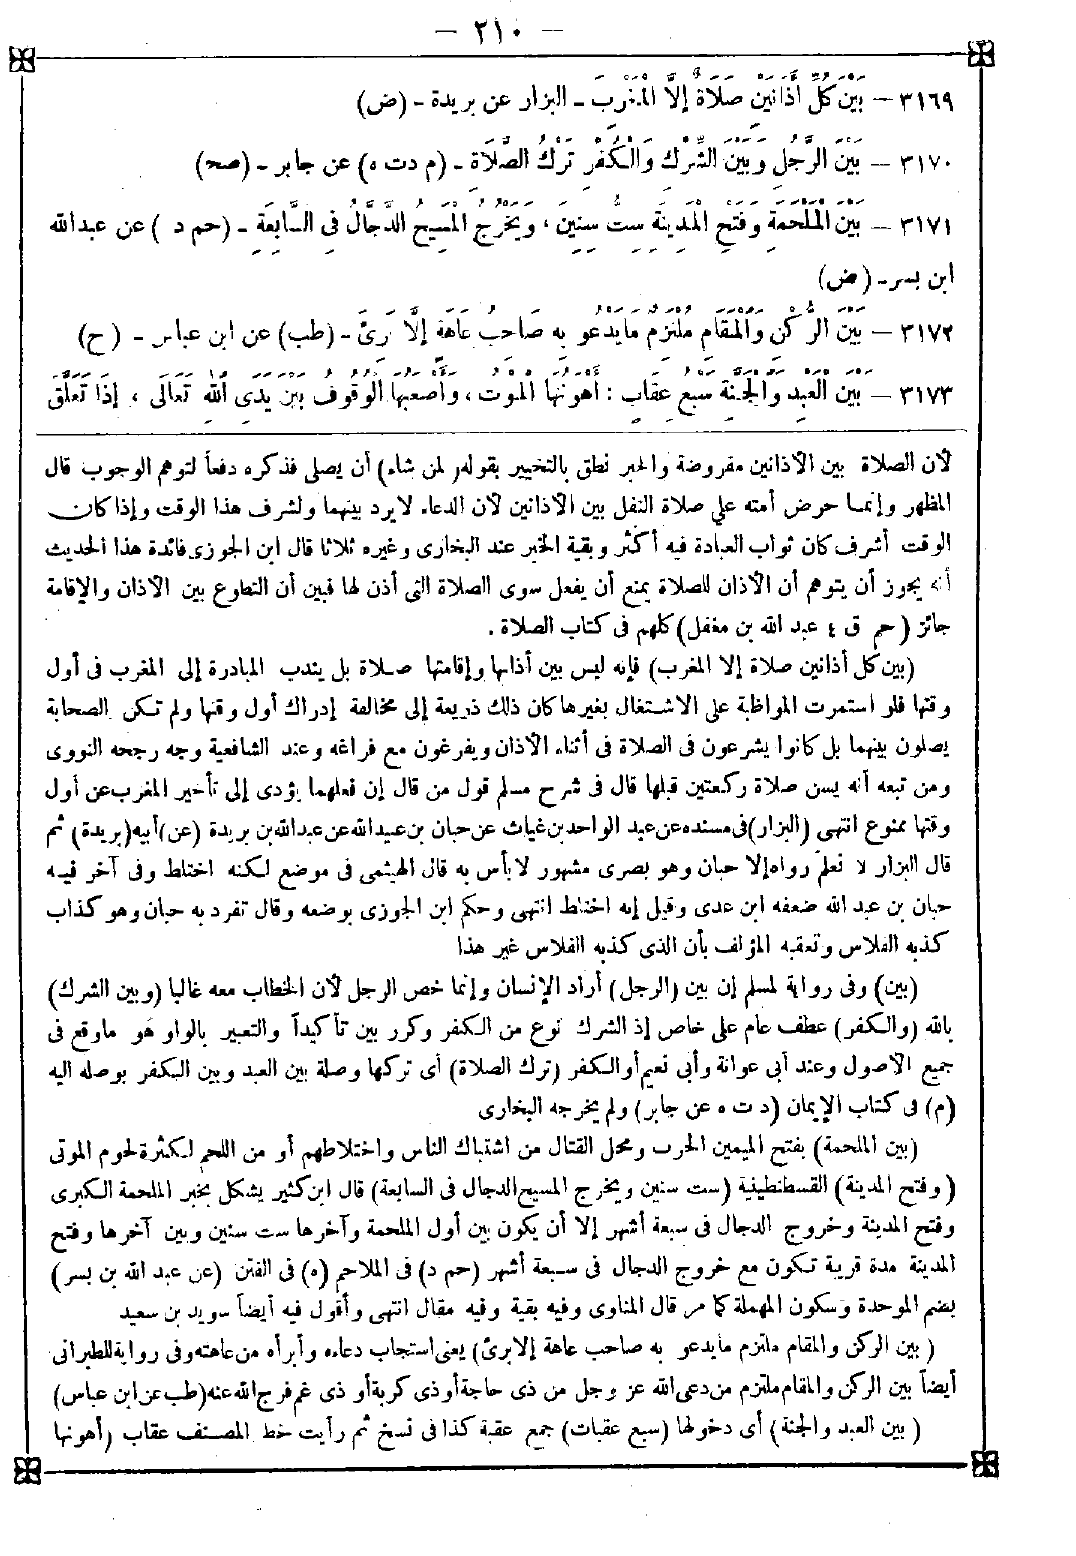 — ٢١٠ —
٣١٦٩ — بَيْنَ كُلِّ أَذَانَيْنِ صَلَاةٌ إِلَّا الْمَغْرِبَ - البزار عن بريدة - (ض)
٣١٧٠ — بَيْنَ الرَّجُلِ وَبَيْنَ الشِّرْكِ وَالْكُفْرِ تَرْكُ الصَّلَاةِ - (م د ت ه) عن جابر - (صح)
٣١٧١ — بَيْنَ الْمَلْحَمَةِ وَفَتْحِ الْمَدِينَةِ سِتُّ سِنِينَ ، وَيَخْرُجُ الْمَسِيحُ الدَّجَّالُ فِي السَّابِعَةِ - (حم د ) عن عبد الله
ابن بسر - (ض)
٣١٧٢ — بَيْنَ الرُّكْنِ وَالْمَقَامِ مُلْتَزَمٌ مَا يَدْعُو بِهِ صَاحِبُ عَاهَةٍ إِلَّا بَرِئَ - (طب) عن ابن عباس - (ح)
٣١٧٣ — بَيْنَ الْعَبْدِ وَالْجَنَّةِ سَبْعُ عِقَابٍ : أَهْوَنُهَا الْمَوْتُ ، وَأَصْعَبُهَا الْوُقُوفُ بَيْنَ يَدَيِ اللهِ تَعَالَى ، إِذَا تَعَلَّقَ
لأن الصلاة بين الأذانين مفروضة والخبر نطق بالتخيير بقوله (لمن شاء) أن يصلى فذكره دفعاً لتوهم الوجوب قال
المظهر وإنما حرض أمته على صلاة النفل بين الأذانين لأن الدعاء لايرد بينهما ولشرف هذا الوقت وإذا كان
الوقت أشرف كان ثواب العبادة فيه أكثر وبقية الخبر عند البخارى وغيره ثلاثا قال ابن الجوزى فائدة هذا الحديث
أنه يجوز أن يتوهم أن الأذان للصلاة يمنع أن يفعل سوى الصلاة التى أذن لها فبين أن التطوع بين الأذان والإقامة
جائز (حم ق ٤ عبد الله بن مغفل) كلهم فى كتاب الصلاة .
(بين كل أذانين صلاة إلا المغرب) فإنه ليس بين أذانها وإقامتها صلاة بل يندب المبادرة إلى المغرب فى أول
وقتها فلو استمرت المواظبة على الاشتغال بغيرها كان ذلك ذريعة إلى مخالفة إدراك أول وقتها ولم تكن الصحابة
يصلون بينهما بل كانوا يشرعون فى الصلاة فى أثناء الأذان ويفرغون مع فراغه وعند الشافعية وجه رجحه النووى
ومن تبعه أنه يسن صلاة ركعتين قبلها قال فى شرح مسلم قول من قال إن فعلهما يؤدى إلى تأخير المغرب عن أول
وقتها ممنوع انتهى (البزار) فى مسنده عن عبد الواحد بن غياث عن حبان بن عبيد الله عن عبد الله بن بريدة (عن) أبيه (بريدة) ثم
قال البزار لا نعلم رواه إلا حبان وهو بصرى مشهور لا بأس به قال الهيثمى فى موضع لكنه اختلط وفى آخر فيه
حبان بن عبد الله ضعفه ابن عدى وقيل إنه اختلط انتهى وحكم ابن الجوزى بوضعه وقال تفرد به حبان وهو كذاب
كذبه الفلاس وتعقبه المؤلف بأن الذى كذبه الفلاس غير هذا
(بين) وفى رواية لمسلم إن بين (الرجل) أراد الإنسان وإنما خص الرجل لأن الخطاب معه غالبا (وبين الشرك)
بالله (والكفر) عطف عام على خاص إذ الشرك نوع من الكفر وكرر بين تأكيداً والتعبير بالواو هو ماوقع فى
جميع الأصول وعند أبى عوانة وأبى نعيم أو الكفر (ترك الصلاة) أى تركها وصلة بين العبد وبين الكفر يوصله اليه
(م) فى كتاب الإيمان (د ت ه عن جابر) ولم يخرجه البخارى
(بين الملحمة) بفتح الميمين الحرب ومحل القتال من اشتباك الناس واختلاطهم أو من اللحم لكثرة لحوم الموتى
(وفتح المدينة) القسطنطينية (ست سنين ويخرج المسيح الدجال فى السابعة) قال ابن كثير يشكل بخبر الملحمة الكبرى
وفتح المدينة وخروج الدجال فى سبعة أشهر إلا أن يكون بين أول الملحمة وآخرها ست سنين وبين آخرها وفتح
المدينة مدة قريبة تكون مع خروج الدجال فى سبعة أشهر (حم د) فى الملاحم (ه) فى الفتن (عن عبد الله بن بسر)
بضم الموحدة وسكون المهملة كما مر قال المناوى وفيه بقية وفيه مقال انتهى وأقول فيه أيضاً سويد بن سعيد
(بين الركن والمقام ملتزم مايدعو به صاحب عاهة إلا برئ) يعنى استجاب دعاءه وأبرأه من عاهته وفى رواية للطبرانى
أيضاً بين الركن والمقام ملتزم من دعى الله عز وجل من ذى حاجة أو ذى كربة أو ذى غم فرج الله عنه (طب عن ابن عباس)
(بين العبد والجنة) أى دخولها (سبع عقبات) جمع عقبة كذا فى نسخ ثم رأيت خط المصنف عقاب (أهونها